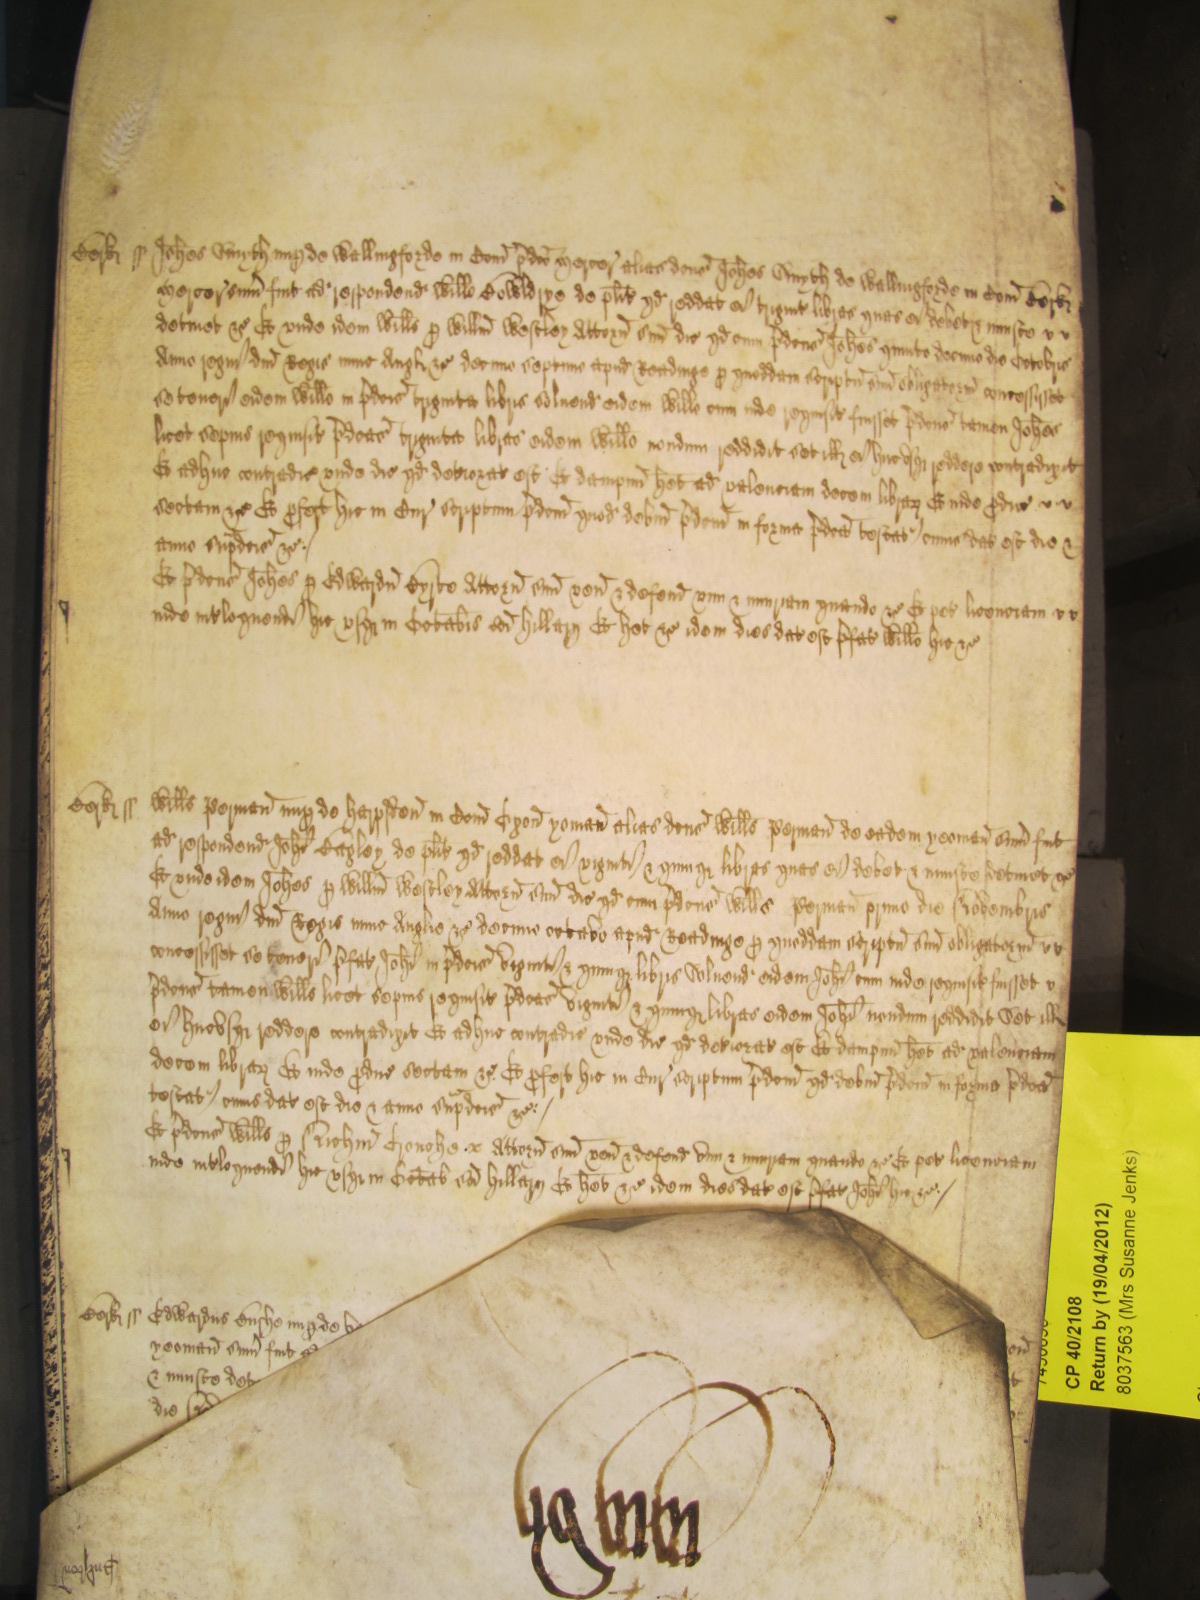 Berk ss Johes Smyth nup de Wallingforde in Com pdco mercer alias dcus Johes Smyth de Wallingforde in Com Berk
mercer sum fuit ad respondend Willo de plito qd reddat ei triginta libras quas ei debet & iniuste
detinet &c Et unde idem Wills p Willm Westley Attorn suu dic qd cum pdcus Johes quinto decimo die Octobris
Anno regni dni Regis nunc Angli &c decimo septimo apud Readinge p quoddam scriptu suu obligatoriu concessisset
se teneri eidem Willo in pdcis triginta libris solvend eidem Willo cum inde requisit fuisset pdcus tamen Johes
licet sepius requisit pdcas triginta libras eidem Willo nondum reddidit set ill ei hucusq reddere contradixit
Et adhuc contradic unde dic qd deteriorat est Et dampnu het ad valenciam decem librar Et inde pduc
sectam &c Et pfert hic in Cur scriptum pdcm quod debitu pdcm in forma pdca testat cuius dat est die &
anno supdcis &c
Et pdcus Johes p Edwardu Attorn suu ven & defend vim & iniuriam quando &c Et pet licenciam
inde interloquendi hic usq in Octabis sci Hillarij Et het &c idem dies dat est pfat Willo hic &c
Berk ss Wills Perman nup de Harpsden in Com Oxon yoman alias dcus Wills Perman de eadem yeoman sum fuit
ad respondend Johi de plito qd reddat ei viginti & quinq libras quas ei debet & iniuste detinet &c
Et unde idem Johes p Willm Westley Attorn suu dic qd cum pdcus Wills Perman primo die Novembris
Anno regni dni Regis nunc Anglie &c decimo octavo apud Readinge p quoddam scriptu suu obligatoriu
concessisset se teneri pfat Johi in pdcis viginti & quinq libris solvend eidem Johi cum inde requisit fuisset
pdcus tamen Wills licet sepius requisit pdcas viginti & quinq libras eidem Johi nondum reddidit Set ill
ei hucusq reddere contradixit Et adhuc contradic unde dic qd deteriorat est Et dampnu het ad valenciam
decem librar Et inde pduc sectam &c Et pfert hic in Cur scriptum pdcm qd debitu pdcm in forma pdca
testat cuius dat est die & anno supdcis &c
Et pdcus Wills p Attorn suu ven & defend vim & iniuriam quando &c Et pet licenciam
inde interloquendi hic usq in Octab sci Hillarij Et het &c idem dies dat est pfat Johi hic &c
Berk ss Edwardus nup de
yeoman sum fuit
& iniuste det
die
CP 40/2108
Return by (19/04/2012)
8037563 (Mrs Susanne Jenks)